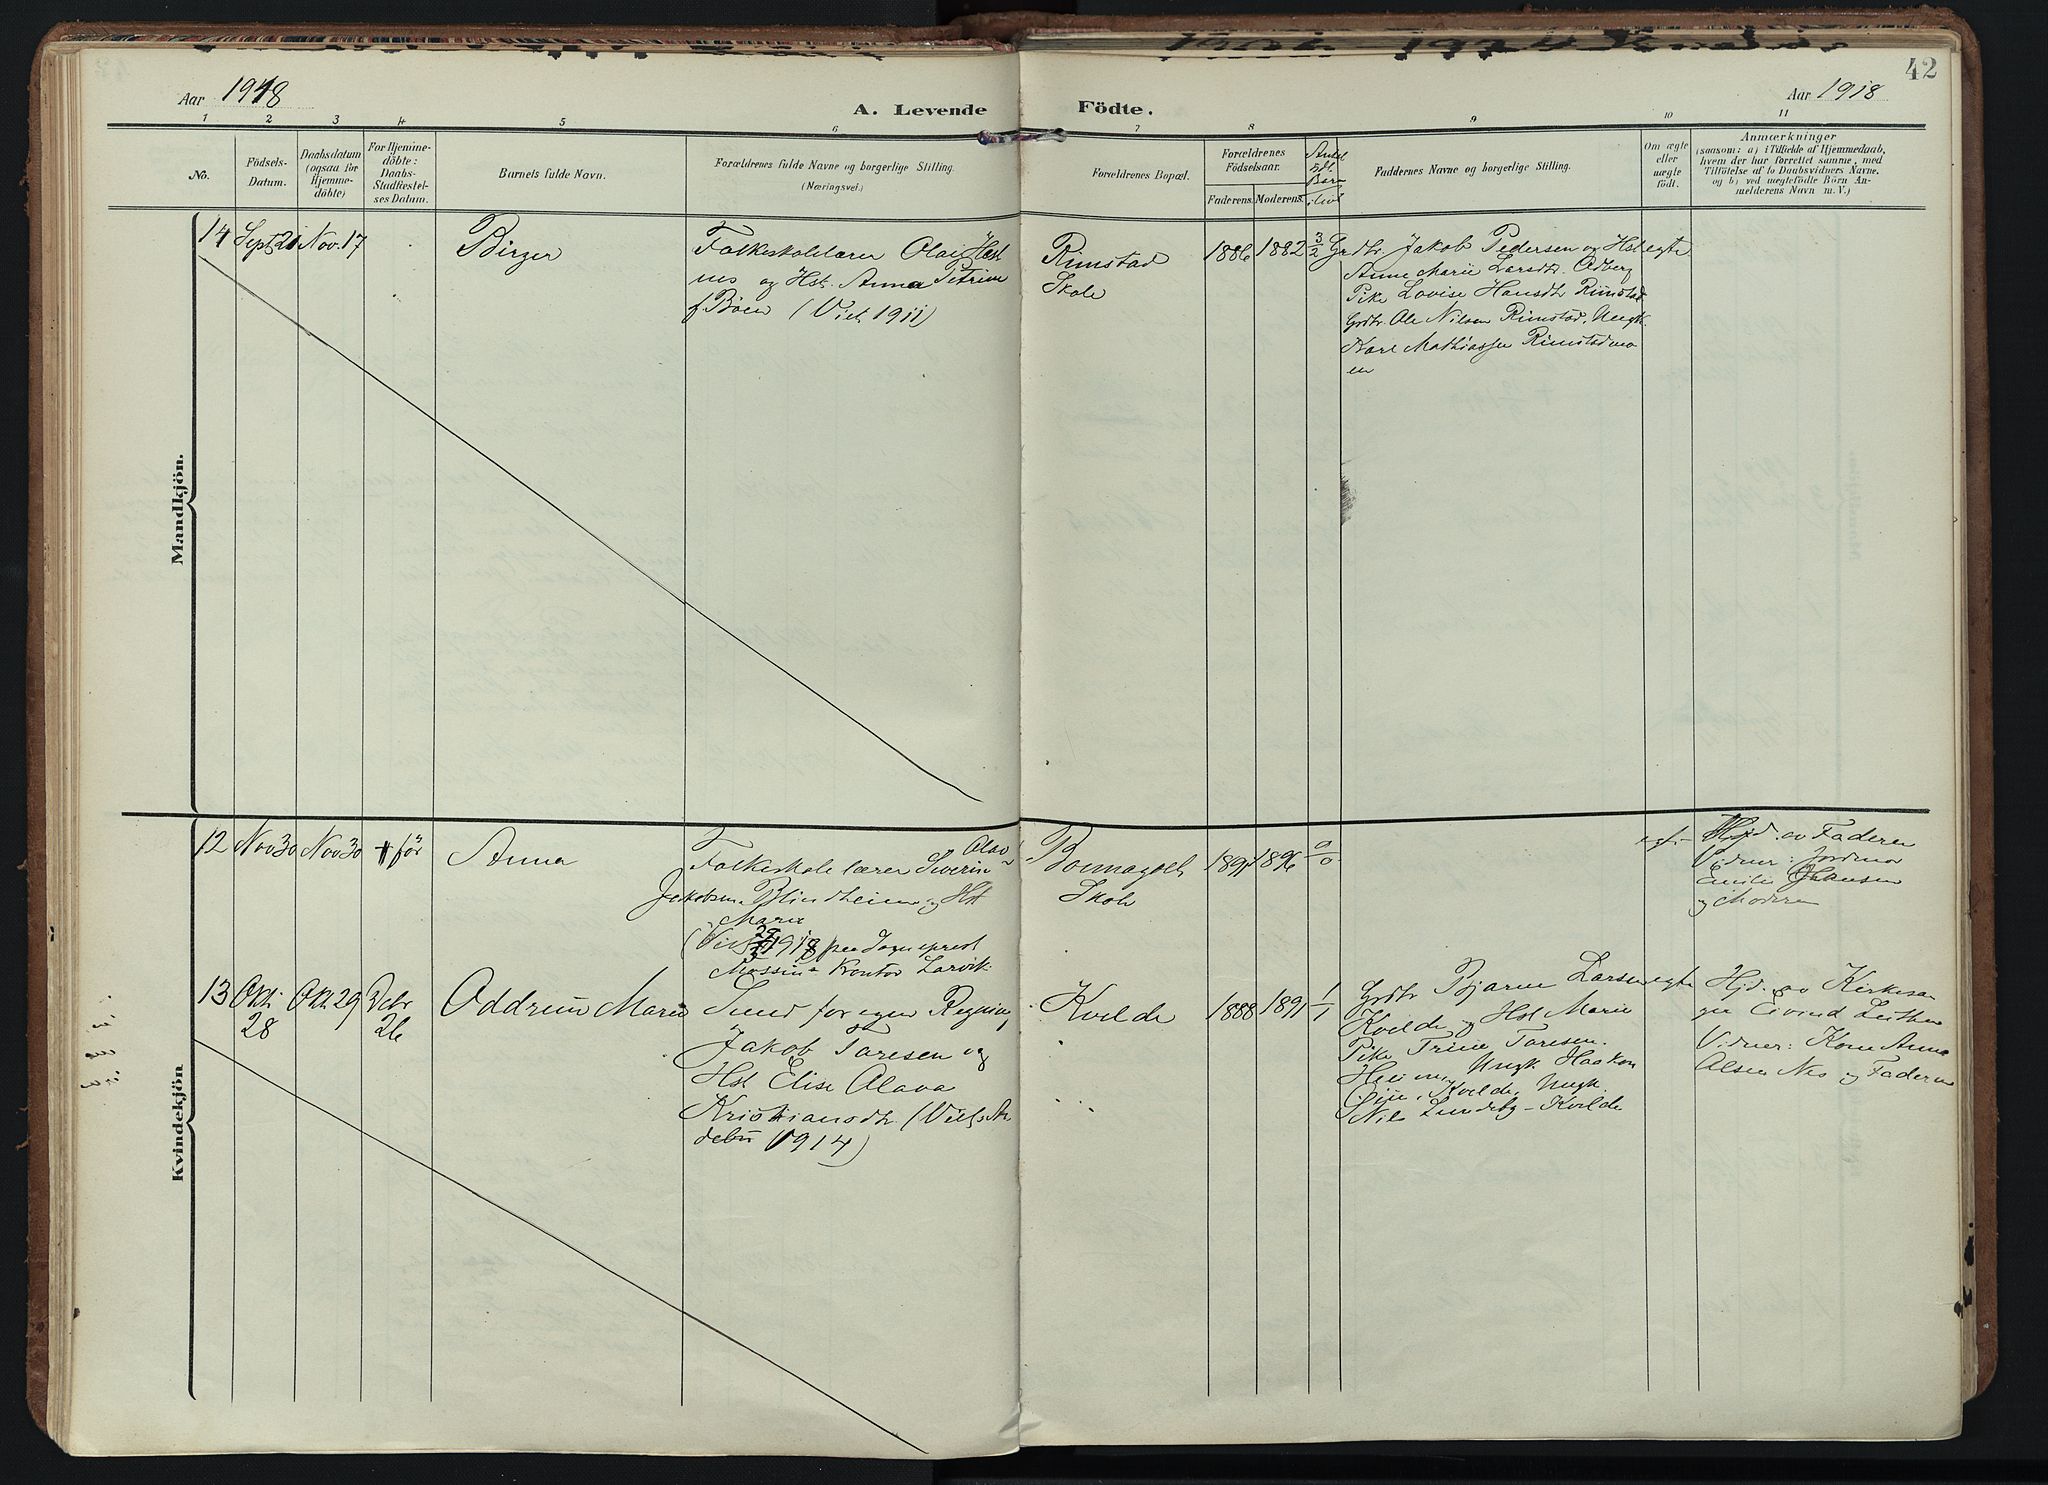 42
Aar 1918
A. Levende
Födte.
Aar 1918
1 2 3 4 5 6 7 8 9 10 11
No.
Födsels-
Datum.
Daabsdatum
(ogsaa for
Hjemme-
döbte)
For Hjemme-
döbte:
Daabs-
Stadfæstel-
ses Datum.
Barnets fulde Navn.
Forældrenes fulde Navne og borgerlige Stilling.
(Næringsvei.)
Forældrenes Bopæl.
Forældrenes
Födselsaar.
Faderens. Moderens.
Faddernes Navne og borgerlige Stilling.
Om ægte
eller
uægte
födt.
Anmærkninger
(saasom: a) i Tilfælde af Hjemmedaab,
hvem der har forrettet samme, med
Tilföielse af to Daabsvidners Navne.
og b) ved uægtefödte Börn An-
melderens Navn m. V.)
Mandkjön.
14
Sept. 21
Nov. 17
Birger
Folkeskolelærer Olai Hest
nes og Hst. Anna Petrine
f. Böen (Viet 1911)
Rimstad
Skole
1886
1882
3/2
Grdbr. Jakob Pedersen og Hst
Anne Marie Larsdtr. Odberg
Pike Lovise Hansdtr Rimstad
Grdbr. Ole Nilsen Rimstad, Ungk.
Karl Mathiassen Rimstadmo
en
egte
Kvindekjön
12
Nov 30
Nov 30
för
Anna
Folkeskolelærer Severin Olav
Jakobsen Blindheim og Hst
Marie
Kontor Larvik
Skole
1896
0/0
egt.
Hjd. av Faderen
Vidner: Jordmor
Emilie
og Moderen
13
Okt.
28
Okt. 29
Debr
26
Oddrun Marie
Smed for egen Regning
Jakob Taresen og
Hst Elise Olava
Kristiansdtr. (Viet i An
debu 1914)
Kvelde
1888
1891
1/1
Grdbr Bjarne Larsen
Kvelde og Hst Marie
Pike Trine Taresen.
Ungk Haakon
Kvelde, Ungk.
Nils Lundeby - Kvelde
egte
Hjd. av Kirkesan
ger Eivind
Vidner: Kone Anna
Olsen Nes og Faderen